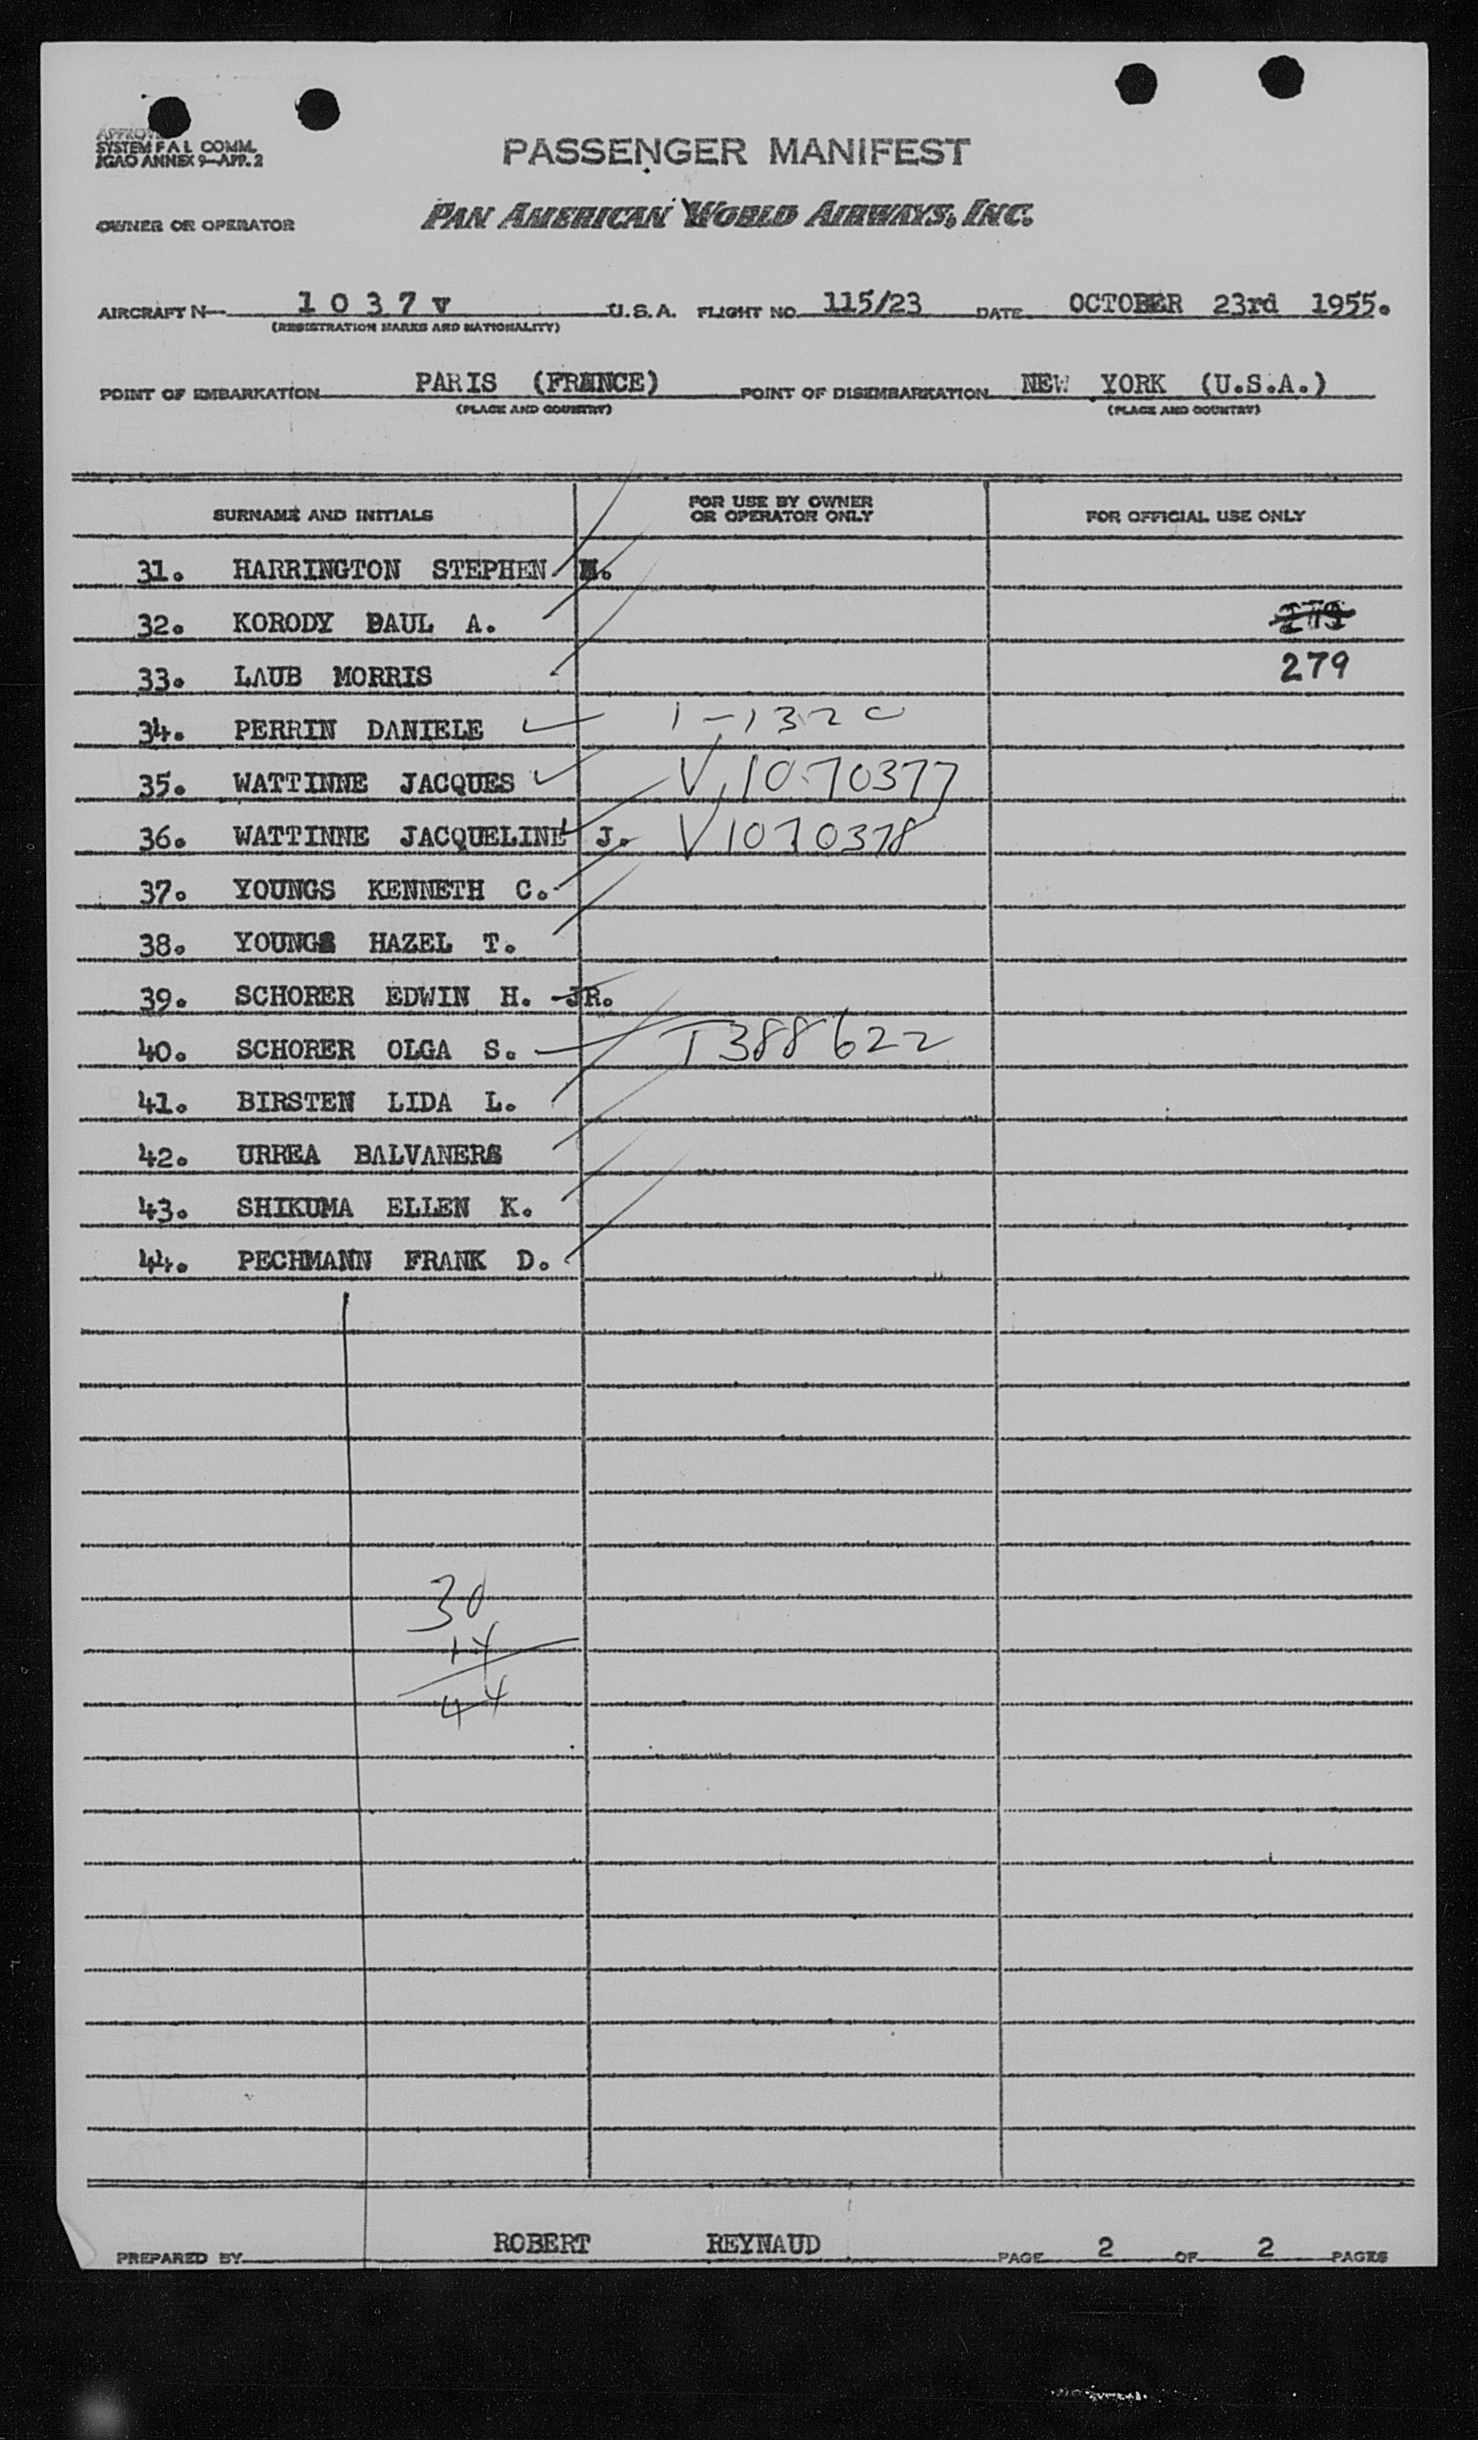 SYSTEM F A L COMM.
ICAO ANNEX 9—APP. 2
PASSENGER MANIFEST
OWNER OR OPERATOR PAN AMERICAN WORLD AIRWAYS, INC.
AIRCRAFT N 1 0 3 7 v U.S.A. FLIGHT NO. 115/23 DATE OCTOBER 23rd 1955.
(REGISTRATION MARKS AND NATIONALITY)
POINT OF EMBARKATION PARIS (FRANCE) POINT OF DISEMBARKATION NEW YORK (U.S.A.)
(PLACE AND COUNTRY) (PLACE AND COUNTRY)
SURNAME AND INITIALS FOR USE BY OWNER OR OPERATOR ONLY FOR OFFICIAL USE ONLY
31. HARRINGTON STEPHEN M.
32. KORODY PAUL A.
33. LAUB MORRIS 279
34. PERRIN DANIELE 1-1320
35. WATTINNE JACQUES V1070377
36. WATTINNE JACQUELINE J. V1070378
37. YOUNGS KENNETH C.
38. YOUNGS HAZEL T.
39. SCHORER EDWIN H. JR.
40. SCHORER OLGA S. T388622
41. BIRSTEN LIDA L.
42. URREA BALVANERA
43. SHIKUMA ELLEN K.
44. PECHMANN FRANK D.
30
14
44
PREPARED BY ROBERT REYNAUD PAGE 2 OF 2 PAGES